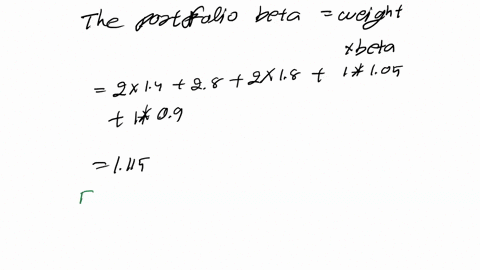 The portfolio beta = weight
x beta
= 2 x 1.4 + 2.8 + 2 x 1.8 + 1 * 1.05
+ 1 * 0.9
= 1.45